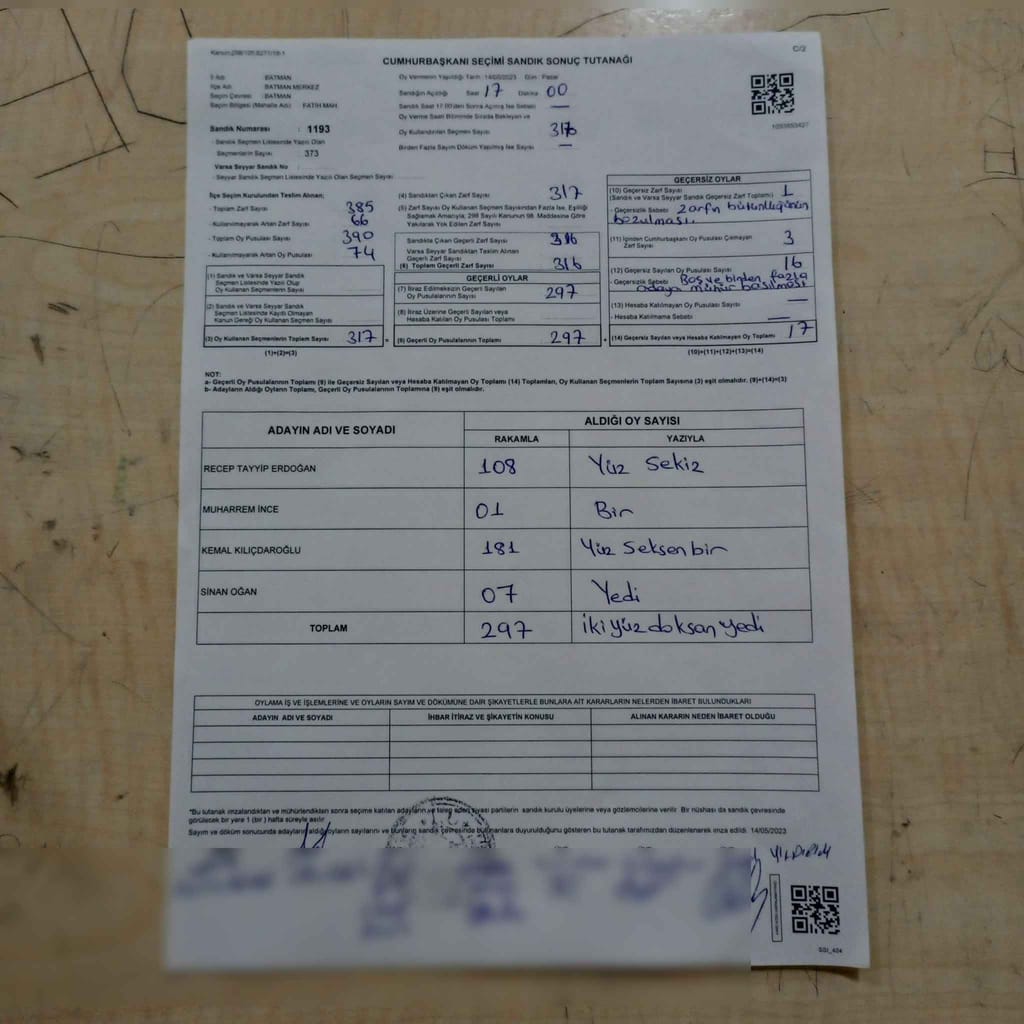 Kanun:298/105 6271/18-1
C/2
CUMHURBAŞKANI SEÇİMİ SANDIK SONUÇ TUTANAĞI
İl Adı : BATMAN
İlçe Adı : BATMAN MERKEZ
Seçim Çevresi : BATMAN
Seçim Bölgesi (Mahalle Adı) : FATİH MAH.
Sandık Numarası : 1193
- Sandık Seçmen Listesinde Yazılı Olan
Seçmenlerin Sayısı : 373
Varsa Seyyar Sandık No :
- Seyyar Sandık Seçmen Listesinde Yazılı Olan Seçmen Sayısı :
Oy Vermenin Yapıldığı Tarih : 14/05/2023 Gün : Pazar
Sandığın Açıldığı Saat 17 Dakika 00
Sandık Saat 17.00'den Sonra Açılmış İse Sebebi —
Oy Verme Saati Bitiminde Sırada Bekleyen ve
Oy Kullandırılan Seçmen Sayısı
Birden Fazla Sayım Döküm Yapılmış İse Sayısı —
1093653427
İlçe Seçim Kurulundan Teslim Alınan;
- Toplam Zarf Sayısı 385
- Kullanılmayarak Artan Zarf Sayısı 66
- Toplam Oy Pusulası Sayısı 390
- Kullanılmayarak Artan Oy Pusulası 74
(1) Sandık ve Varsa Seyyar Sandık
Seçmen Listesinde Yazılı Olup
Oy Kullanan Seçmenlerin Sayısı
(2) Sandık ve Varsa Seyyar Sandık
Seçmen Listesinde Kayıtlı Olmayan
Kanun Gereği Oy Kullanan Seçmen Sayısı
(3) Oy Kullanan Seçmenlerin Toplam Sayısı 317 =
(1)+(2)=(3)
(4) Sandıktan Çıkan Zarf Sayısı 317
(5) Zarf Sayısı Oy Kullanan Seçmen Sayısından Fazla İse, Eşitliği
Sağlamak Amacıyla, 298 Sayılı Kanunun 98. Maddesine Göre
Yakılarak Yok Edilen Zarf Sayısı
Sandıkta Çıkan Geçerli Zarf Sayısı 316
Varsa Seyyar Sandıktan Teslim Alınan
Geçerli Zarf Sayısı
(6) Toplam Geçerli Zarf Sayısı 316
GEÇERLİ OYLAR
(7) İtiraz Edilmeksizin Geçerli Sayılan
Oy Pusulalarının Sayısı 297
(8) İtiraz Üzerine Geçerli Sayılan veya
Hesaba Katılan Oy Pusulası Toplamı
(9) Geçerli Oy Pusulalarının Toplamı 297 +
GEÇERSİZ OYLAR
(10) Geçersiz Zarf Sayısı
(Sandık ve Varsa Seyyar Sandık Geçersiz Zarf Toplamı) 1
- Geçersizlik Sebebi : Zarfın bütünlüğünün
bozulması.
(11) İçinden Cumhurbaşkanı Oy Pusulası Çıkmayan
Zarf Sayısı 3
(12) Geçersiz Sayılan Oy Pusulası Sayısı 16
- Geçersizlik Sebebi : Boş ve birden fazla
adaya mühür basılması
(13) Hesaba Katılmayan Oy Pusulası Sayısı —
- Hesaba Katılmama Sebebi : —
(14) Geçersiz Sayılan veya Hesaba Katılmayan Oy Toplamı 17
(10)+(11)+(12)+(13)=(14)
NOT:
a- Geçerli Oy Pusulalarının Toplamı (9) ile Geçersiz Sayılan veya Hesaba Katılmayan Oy Toplamı (14) Toplamları, Oy Kullanan Seçmenlerin Toplam Sayısına (3) eşit olmalıdır. (9)+(14)=(3)
b- Adayların Aldığı Oyların Toplamı, Geçerli Oy Pusulalarının Toplamına (9) eşit olmalıdır.
ADAYIN ADI VE SOYADI
ALDIĞI OY SAYISI
RAKAMLA YAZIYLA
RECEP TAYYİP ERDOĞAN 108 Yüz Sekiz
MUHARREM İNCE 01 Bir
KEMAL KILIÇDAROĞLU 181 Yüz Seksen bir
SİNAN OĞAN 07 Yedi
TOPLAM 297 iki yüz doksan yedi
OYLAMA İŞ VE İŞLEMLERİNE VE OYLARIN SAYIM VE DÖKÜMÜNE DAİR ŞİKAYETLERLE BUNLARA AİT KARARLARIN NELERDEN İBARET BULUNDUKLARI
ADAYIN ADI VE SOYADI İHBAR İTİRAZ VE ŞİKAYETİN KONUSU ALINAN KARARIN NEDEN İBARET OLDUĞU
*Bu tutanak imzalandıktan ve mühürlendikten sonra seçime katılan adayların ve talep eden siyasi partilerin sandık kurulu üyelerine veya gözlemcilerine verilir. Bir nüshası da sandık çevresinde
görülecek bir yere 1 (bir) hafta süreyle asılır.
Sayım ve döküm sonucunda adayların aldığı oyların sayılarını ve bunların sandık çevresinde bulunanlara duyurulduğunu gösteren bu tutanak tarafımızdan düzenlenerek imza edildi. 14/05/2023
YILDIRIM
SGI_424